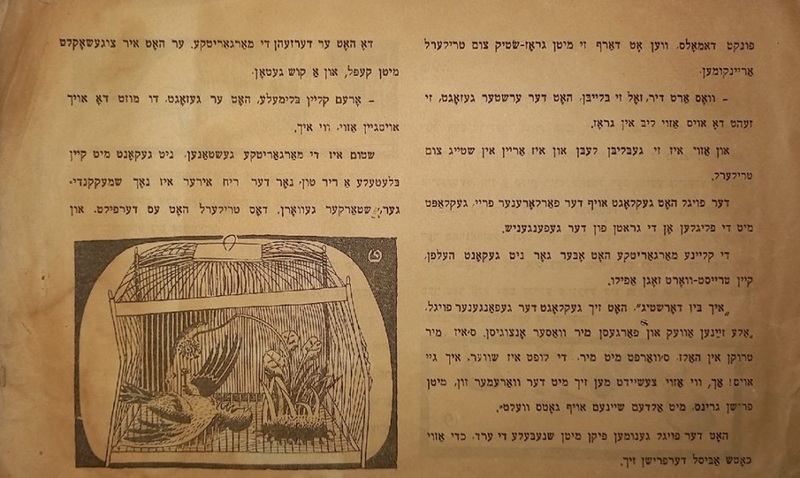 פונקט דאמאלס, ווען אט דארף זי מיטן גראז-שטיק צום טרילערל
אריינקומען.
– וואס ארט דיר, זאל זי בלייבן, האט דער ערשטער געזאגט, זי
זעהט דא אויס אזוי ליב אין גראז.
און אזוי איז זי געבליבן לעבן און איז אריין אין שטייג צום
טרילערל.
דער פויגל האט געקלאגט אויף דער פארלארענער פריי, געקלאפט
מיט די פליגלען אן די גראטן פון דער געפענגעניש.
די קליינע מארגאריטקע האט אבער גאר ניט געקאנט העלפן,
קיין טרייסט-ווארט זאגן אפילו.
„איך בין דארשטיג", האט זיך געקלאגט דער געפאנגענער פויגל,
„אלע זיינען אוועק און פארגעסן מיר וואסער אנצוגיסן. ס׳איז מיר
טרוקן אין האלז, ס׳ווארפט מיט מיר, די לופט איז שווער, איך גיי
אויס! אך, ווי אזוי צעשיידט מען זיך מיט דער ווארעמער זון, מיטן
פרישן גרינס, מיט אלדעם שיינעם אויף גאטס וועלט".
האט דער פויגל גענומען פיקן מיטן שנעבעלע די ערד, כדי אזוי
כאטש אביסל דערפרישן זיך.
דא האט ער דערזעהן די מארגאריטקע. ער האט איר צוגעשאקלט
מיטן קעפל, און א קוש געטאן.
– ארעם קליין בלימעלע, האט ער געזאגט, דו מוזט דא אויך
אויסגיין אזוי, ווי איך.
שטום איז די מארגאריטקע געשטאנען, ניט געקאנט מיט קיין
בלעטעלע א ריר טון, נאר דער ריח אירער איז נאך שמעקנדי-
גער, שטארקער געווארן. דאס טרילערל האט עס דערפילט. און